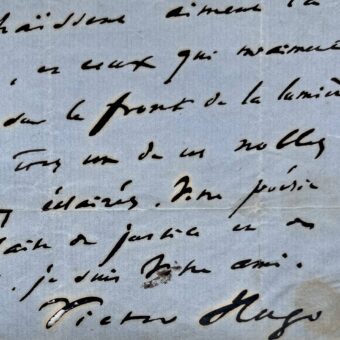 haïssent aiment la
, et ceux qui m'aiment
sur le front de la lumiè
êtes un de ces nobles
éclairés. Votre poésie
faite de justice et de
. je suis Votre ami.
Victor Hugo